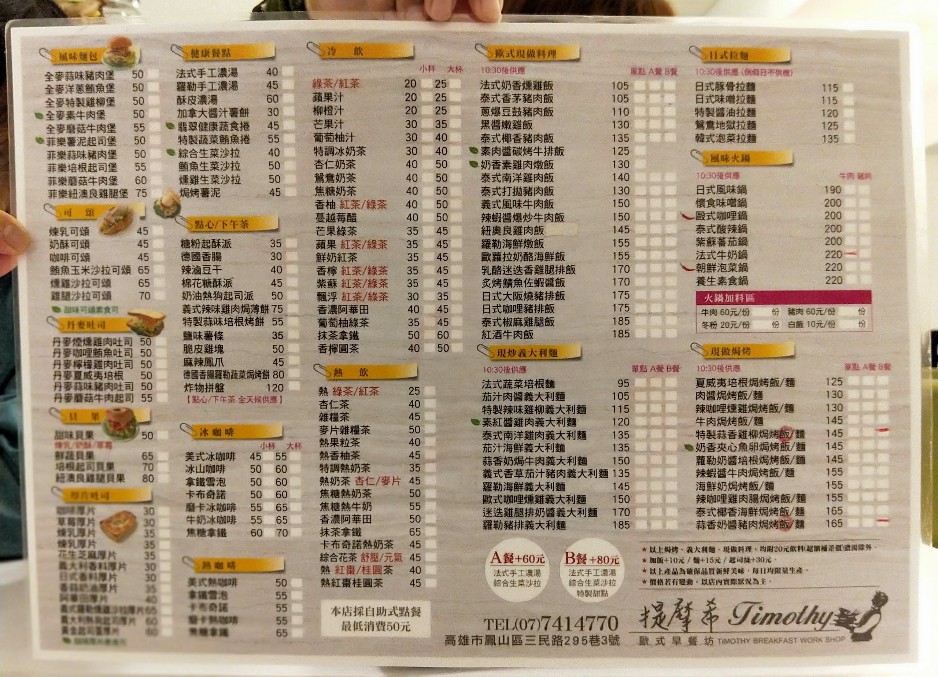 風味麵包
全麥蒜味豬肉堡 50
全麥洋蔥鮪魚堡 50
全麥特製雞柳堡 50
全麥素牛肉堡 50
全麥蘑菇牛肉堡 55
菲樂薯泥起司堡 50
菲樂蒜味豬肉堡 50
菲樂培根起司堡 55
菲樂蘑菇牛肉堡 60
菲樂紐澳良雞腿堡 75
可頌
煉乳可頌 45
奶酥可頌 45
咖啡可頌 45
鮪魚玉米沙拉可頌 65
燻雞沙拉可頌 65
雞腿沙拉可頌 70
甜味可頌素食可
丹麥吐司
丹麥煙燻雞肉吐司 50
丹麥咖哩鮪魚吐司 50
丹麥檸檬雞肉吐司 50
丹麥夏威夷培根 50
丹麥蒜味豬肉吐司 50
丹麥蘑菇牛肉起司 55
貝果
甜味貝果 50
鮮蔬貝果 65
培根起司貝果 70
紐澳良雞腿貝果 80
厚片吐司
咖啡厚片 30
草莓厚片 30
煉乳厚片 35
花生芝麻厚片 35
義大利香料厚片 30
日式香料厚片 30
香蒜奶油厚片 35
健康餐點
法式手工濃湯 40
羅勒手工濃湯 45
酥皮濃湯 60
加拿大醬汁薯餅 30
翡翠健康蔬食捲 45
特製蔬菜鮪魚捲 55
綜合生菜沙拉 40
鮪魚生菜沙拉 50
燻雞生菜沙拉 50
焗烤薯泥 45
點心/下午茶
糖粉起酥派 35
德國香腸 30
辣滷豆干 40
棉花糖酥派 45
奶油熱狗起司派 50
義式辣味雞肉焗薄餅 75
特製蒜味培根烤餅 55
鹽味薯條 35
脆皮雞塊 50
麻辣鳳爪 45
德國香腸羅勒蔬菜焗烤餅 80
炸物拼盤 120
【點心/下午茶 全天候供應】
冰咖啡
小杯 大杯
美式冰咖啡 45 55
冰山咖啡 50 60
拿鐵雪泡 50 60
卡布奇諾 50 60
磨卡冰咖啡 55 65
牛奶冰咖啡 55 65
焦糖拿鐵 60 70
熱咖啡
美式熱咖啡 50
拿鐵雪泡 55
卡布奇諾 55
磨卡熱咖啡 55
焦糖拿鐵 65
冷飲
小杯 大杯
綠茶/紅茶 20 25
蘋果汁 20 40
柳橙汁 20 40
芒果汁 30 35
葡萄柚汁 30 40
特調冰奶茶 30 40
杏仁奶茶 40 50
鴛鴦奶茶 40 50
焦糖奶茶 40 50
香柚 紅茶/綠茶 40 50
蔓越莓醋 40 50
芒果綠茶 35 45
蘋果 紅茶/綠茶 35 45
鮮奶紅茶 35 40
香檸 紅茶/綠茶 35 45
紫蘇 紅茶/綠茶 35 45
飄浮 紅茶/綠茶 30 35
香濃阿華田 40 50
葡萄柚綠茶 35 45
抹茶拿鐵 50 60
香檸圓茶 40 50
熱飲
熱 綠茶/紅茶 25
杏仁茶 40
雜糧茶 45
麥片雜糧茶 50
熱果粒茶 40
熱香柚茶 45
特調熱奶茶 35
熱奶茶 杏仁/麥片 45
焦糖熱奶茶 50
焦糖熱牛奶 55
香濃阿華田 50
抹茶拿鐵 65
卡布奇諾熱奶茶 45
綜合花茶 舒壓/元氣 45
熱 紅棗/桂圓茶 40
熱紅棗桂圓茶 45
本店採自助式點餐
最低消費50元
歐式現做料理
10:30後供應 單點 A餐 B餐
法式奶香燻雞飯 105
泰式香茅豬肉飯 105
蔥爆豆鼓豬肉飯 110
黑醬嫩雞飯 130
泰式椰香豬肉飯 135
素肉醬碳烤牛排飯 125
奶香素雞肉燉飯 130
泰式南洋雞肉飯 140
泰式打拋豬肉飯 130
義式風味牛肉飯 150
辣蝦醬爆炒牛肉飯 150
紐奧良雞肉飯 145
羅勒海鮮燉飯 155
歐蘿拉奶酪海鮮飯 155
乳酪迷迭香雞腿排飯 170
炙烤鯖魚佐蝦醬飯 170
日式大阪燒豬排飯 175
日式咖哩豬排飯 175
泰式椒麻雞腿飯 185
紅酒牛肉飯 185
現炒義大利麵
10:30後供應 單點 A餐 B餐
法式蔬菜培根麵 95
茄汁肉醬義大利麵 105
特製辣味雞柳義大利麵 105
素紅醬雞肉義大利麵 120
泰式南洋雞肉義大利麵 135
茄汁海鮮義大利麵 135
蒜香奶焗牛肉義大利麵 150
義式香草茄汁豬肉義大利麵 135
羅勒海鮮義大利麵 145
歐式咖哩燻雞義大利麵 150
迷迭雞腿排奶醬義大利麵 170
羅勒豬排義大利麵 185
A餐+60元
法式手工濃湯
綜合生菜沙拉
B餐+80元
法式手工濃湯
綜合生菜沙拉
特製甜點
日式拉麵
10:30後供應 (例假日不供應)
日式豚骨拉麵 115
日式味噌拉麵 115
特製醬油拉麵 120
鴛鴦地獄拉麵 125
韓式泡菜拉麵 135
風味火鍋
10:30後供應 牛肉 豬肉
日式風味鍋 190
懷食味噌鍋 200
殿式咖哩鍋 200
泰式酸辣鍋 200
紫蘇蕃茄鍋 200
法式牛奶鍋 220
朝鮮泡菜鍋 220
養生素食鍋 220
火鍋加料區
牛肉 60元/份 份 豬肉 60元/份 份
冬粉 20元/份 份 白飯 10元/份 份
現做焗烤
10:30後供應 單點 A餐 B餐
夏威夷培根焗烤飯/麵 125
肉醬焗烤飯/麵 130
辣咖哩燻雞焗烤飯/麵 130
牛肉焗烤飯/麵 145
特製蒜香雞柳焗烤飯/麵 145
奶香夾心魚卵焗烤飯/麵 145
蘿勒奶醬培根焗烤飯/麵 145
辣蝦醬牛肉焗烤飯/麵 155
海鮮奶焗烤飯/麵 155
辣咖哩雞肉腸焗烤飯/麵 155
泰式椰香海鮮焗烤飯/麵 165
蒜香奶醬豬肉焗烤飯/麵 165
★加飯+10元 / 麵+15元 / 起司絲+30元
★以上產品為確保品質新鮮美味，每日均限量生產。
★價格若有變動，以店內實際狀況為主。
TEL(07)7414770
高雄市鳳山區三民路295巷3號
提摩希 Timothy
歐式早餐坊 TIMOTHY BREAKFAST WORK SHOP